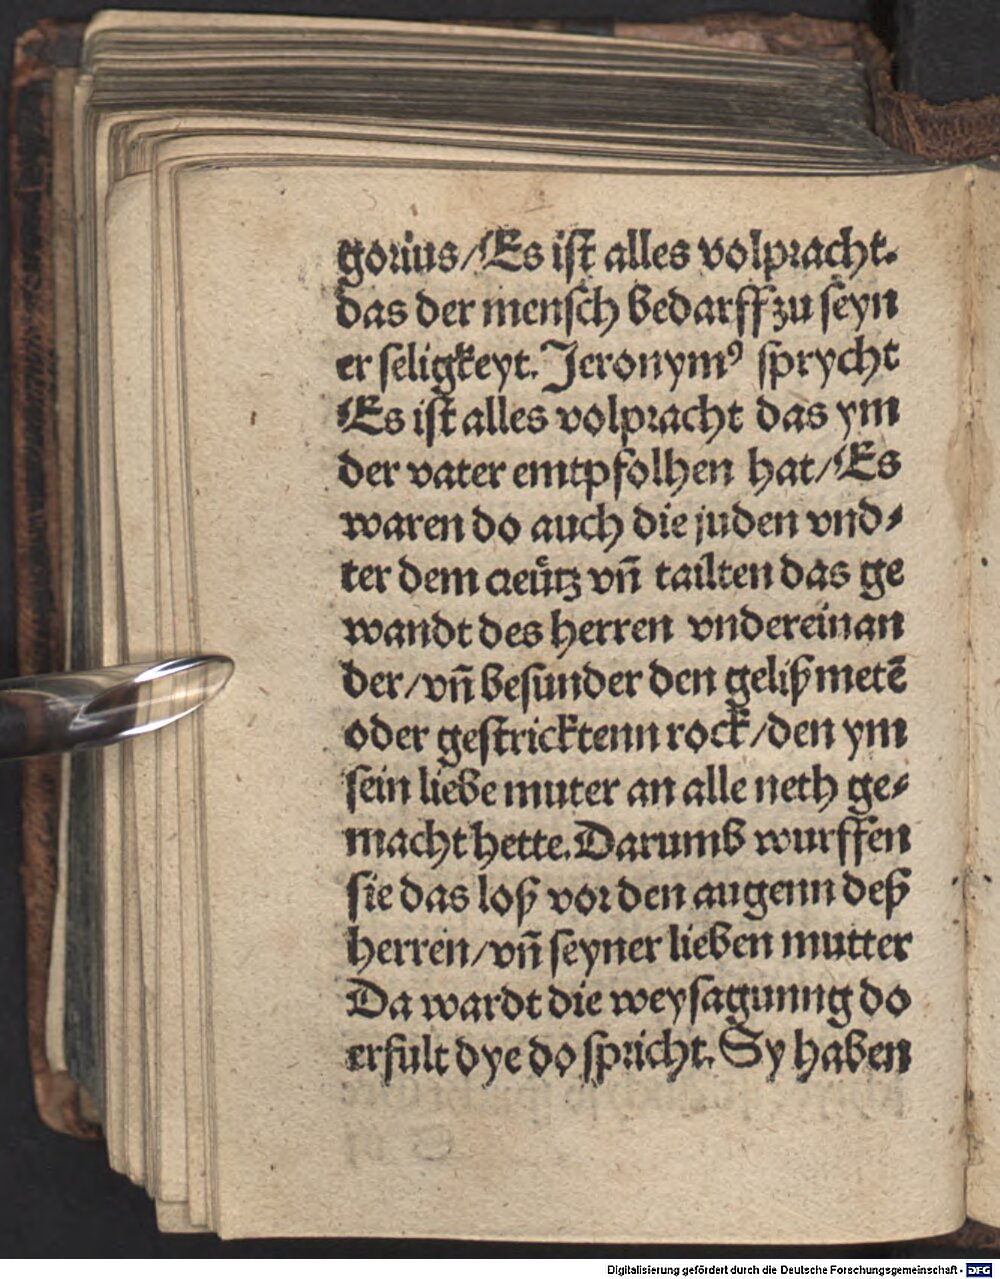 gorius/Es ist alles volpracht.
das der mensch bedarff zu seyn
er seligkeyt. Jeronymꝰ sprycht
Es ist alles volpracht das ym
der vater emtpfolhen hat/Es
waren do auch die juden vnd⸗
ter dem creütz vñ tailten das ge
wandt des herren vndereinan
der/vñ besunder den geliszmetē
oder gestricktenn rock/den ym
sein liebe muter an alle neth ge⸗
macht hette. Darumb wurffen
sie das losz vor den augenn desz
herren/vñ seyner lieben mutter
Da wardt die weysagunng do
erfult dye do spricht. Sy haben
Digitalisierung gefördert durch die Deutsche Forschungsgemeinschaft - DFG